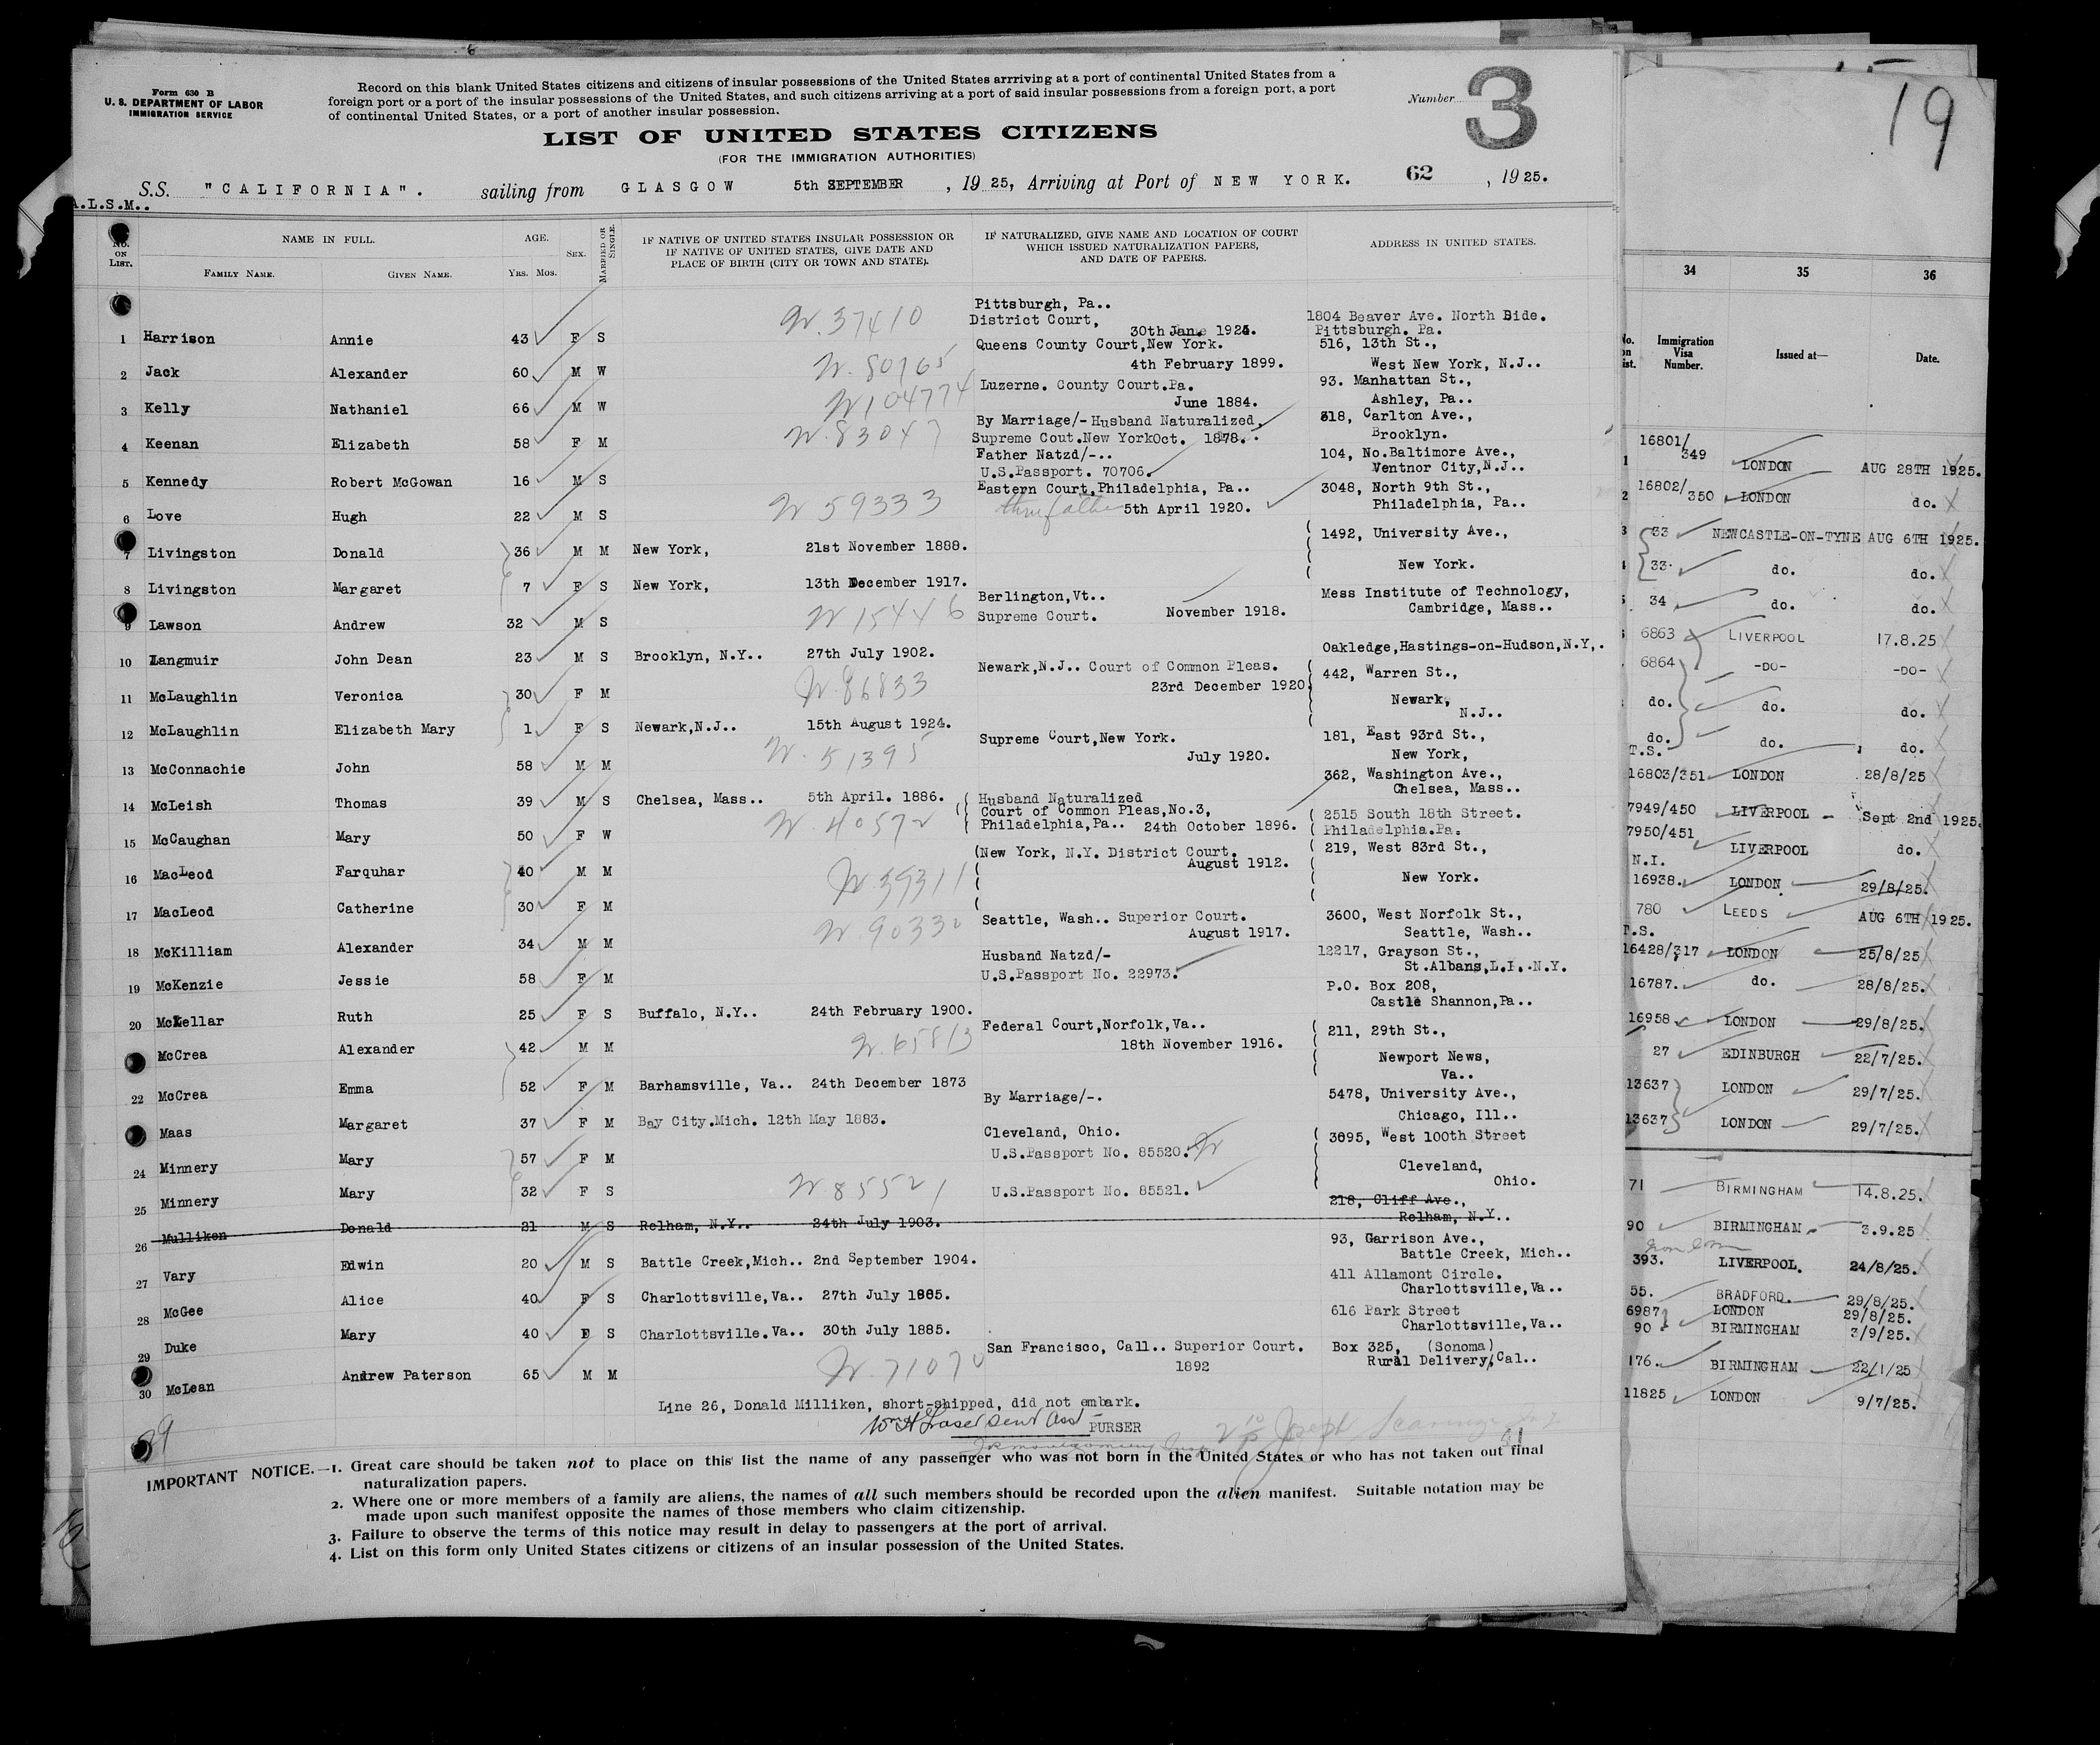 Form 630 B
U. S. DEPARTMENT OF LABOR
IMMIGRATION SERVICE
Record on this blank United States citizens and citizens of insular possessions of the United States arrriving at a port of continental United States from a
foreign port or a port of the insular possessions of the United States, and such citizens arriving at a port of said insular possessions from a foreign port, a port
of continental United States, or a port of another insular possession.
Number 3
LIST OF UNITED STATES CITIZENS
(FOR THE IMMIGRATION AUTHORITIES)
S.S. "CALIFORNIA". sailing from GLASGOW 5th SEPTEMBER , 19 25, Arriving at Port of NEW YORK. 62 , 19 25.
A.L.S.M..
No. ON LIST. NAME IN FULL. FAMILY NAME. GIVEN NAME. AGE. Yrs. Mos. SEX. MARRIED OR SINGLE.
IF NATIVE OF UNITED STATES INSULAR POSSESSION OR
IF NATIVE OF UNITED STATES, GIVE DATE AND
PLACE OF BIRTH (CITY OR TOWN AND STATE).
IF NATURALIZED, GIVE NAME AND LOCATION OF COURT
WHICH ISSUED NATURALIZATION PAPERS,
AND DATE OF PAPERS.
ADDRESS IN UNITED STATES.
Pittsburgh, Pa..
District Court, 1804 Beaver Ave. North Side.
1 Harrison Annie 43 F S N. 37410 30th 192 . Pittsburgh. Pa.
Queens County Court,New York. 516, 13th St.,
2 Jack Alexander 60 M W N. 80765 4th February 1899. West New York, N.J..
Luzerne. County Court.Pa. 93. Manhattan St.,
3 Kelly Nathaniel 66 M W N 104774 June 1884. Ashley, Pa..
By Marriage/-Husband Naturalized, 318, Carlton Ave.,
4 Keenan Elizabeth 58 F M N. 83047 Supreme Cout.New YorkOct. 1878.. Brooklyn.
Father Natzd/-.. 104, No.Baltimore Ave.,
5 Kennedy Robert McGowan 16 M S U.S.Passport. 70706. Ventnor City,N.J..
Eastern Court,Philadelphia, Pa.. 3048, North 9th St.,
6 Love Hugh 22 M S N 59333 thru father 5th April 1920. Philadelphia, Pa..
7 Livingston Donald 36 M M New York, 21st November 1888. 1492, University Ave.,
New York.
8 Livingston Margaret 7 F S New York, 13th December 1917.
Berlington,Vt.. Mess Institute of Technology,
9 Lawson Andrew 32 M S N 15446 Supreme Court. November 1918. Cambridge, Mass..
10 Langmuir John Dean 23 M S Brooklyn, N.Y.. 27th July 1902. Oakledge,Hastings-on-Hudson,N.Y,.
Newark,N.J.. Court of Common Pleas. 442, Warren St.,
11 McLaughlin Veronica 30 F M N. 86833 23rd December 1920 Newark,
N.J..
12 McLaughlin Elizabeth Mary 1 F S Newark,N.J.. 15th August 1924.
Supreme Court,New York. 181, East 93rd St.,
13 McConnachie John 58 M M N. 51395 July 1920. New York,
362, Washington Ave.,
14 McLeish Thomas 39 M S Chelsea, Mass.. 5th April. 1886. Chelsea, Mass..
Husband Naturalized
Court of Common Pleas,No.3, 2515 South 18th Street.
15 McCaughan Mary 50 F W N. 40572 Philadelphia,Pa.. 24th October 1896. Philadelphia.Pa.
(New York, N.Y. District Court. 219, West 83rd St.,
16 MacLeod Farquhar 40 M M N. 39311 August 1912.
New York.
17 MacLeod Catherine 30 F M
Seattle, Wash.. Superior Court. 3600, West Norfolk St.,
18 McKilliam Alexander 34 M M N. 90330 August 1917. Seattle, Wash..
Husband Natzd/- 12217, Grayson St.,
19 McKenzie Jessie 58 F M U.S.Passport No. 22973. St.Albans,L.I..N.Y.
P.O. Box 208,
20 McKellar Ruth 25 F S Buffalo, N.Y.. 24th February 1900. Castle Shannon,Pa..
Federal Court,Norfolk,Va.. 211, 29th St.,
McCrea Alexander 42 M M N. 65813 18th November 1916. Newport News,
Va..
22 McCrea Emma 52 F M Barhamsville, Va.. 24th December 1873
By Marriage/-. 5478, University Ave.,
Maas Margaret 37 F M Bay City.Mich. 12th May 1883. Chicago, Ill..
Cleveland, Ohio. 3095, West 100th Street
24 Minnery Mary 57 F M U.S.Passport No. 85520.
Cleveland,
Ohio.
25 Minnery Mary 32 F S N. 85521 U.S.Passport No. 85521.
218, Cliff Ave.,
26 Mulliken Donald 21 M S Relham, N.Y.. 24th July 1903. Relham, N.Y..
93, Garrison Ave.,
27 Vary Edwin 20 M S Battle Creek,Mich.. 2nd September 1904. Battle Creek, Mich..
411 Allamont Circle.
28 McGee Alice 40 F S Charlottsville,Va.. 27th July 1885. Charlottsville,Va..
616 Park Street
29 Duke Mary 40 F S Charlottsville.Va.. 30th July 1885. Charlottsville,Va..
San Francisco, Call.. Superior Court. Box 325, (Sonoma)
30 McLean Andrew Paterson 65 M M N. 71070 1892 Rural Delivery,Cal..
Line 26, Donald Milliken, short-shipped, did not embark.
PURSER
IMPORTANT NOTICE.—1. Great care should be taken not to place on this list the name of any passenger who was not born in the United States or who has not taken out final
naturalization papers.
2. Where one or more members of a family are aliens, the names of all such members should be recorded upon the alien manifest. Suitable notation may be
made upon such manifest opposite the names of those members who claim citizenship.
3. Failure to observe the terms of this notice may result in delay to passengers at the port of arrival.
4. List on this form only United States citizens or citizens of an insular possession of the United States.
19
34 35 36
Immigration Visa Number. Issued at— Date.
16801/349 LONDON AUG 28TH 1925.
16802/350 LONDON do.
33 NEWCASTLE-ON-TYNE AUG 6TH 1925.
33. do. do.
34 do. do.
6863 LIVERPOOL 17.8.25
6864 -DO- -DO-
do. do. do.
do. do. do.
T.S.
16803/351 LONDON 28/8/25
7949/450 LIVERPOOL Sept 2nd 1925.
7950/451 LIVERPOOL do.
N.I.
16938. LONDON 29/8/25.
780 LEEDS AUG 6TH 1925.
T.S.
16428/317 LONDON 25/8/25
16787. do. 28/8/25.
16958 LONDON 29/8/25.
27 EDINBURGH 22/7/25.
13637 LONDON 29/7/25.
13637 LONDON 29/7/25.
71 BIRMINGHAM 14.8.25.
90 BIRMINGHAM 3.9.25
393. LIVERPOOL. 24/8/25.
55. BRADFORD. 29/8/25.
6987 LONDON 29/8/25.
90 BIRMINGHAM 3/9/25.
176. BIRMINGHAM 22/1/25
11825 LONDON 9/7/25.